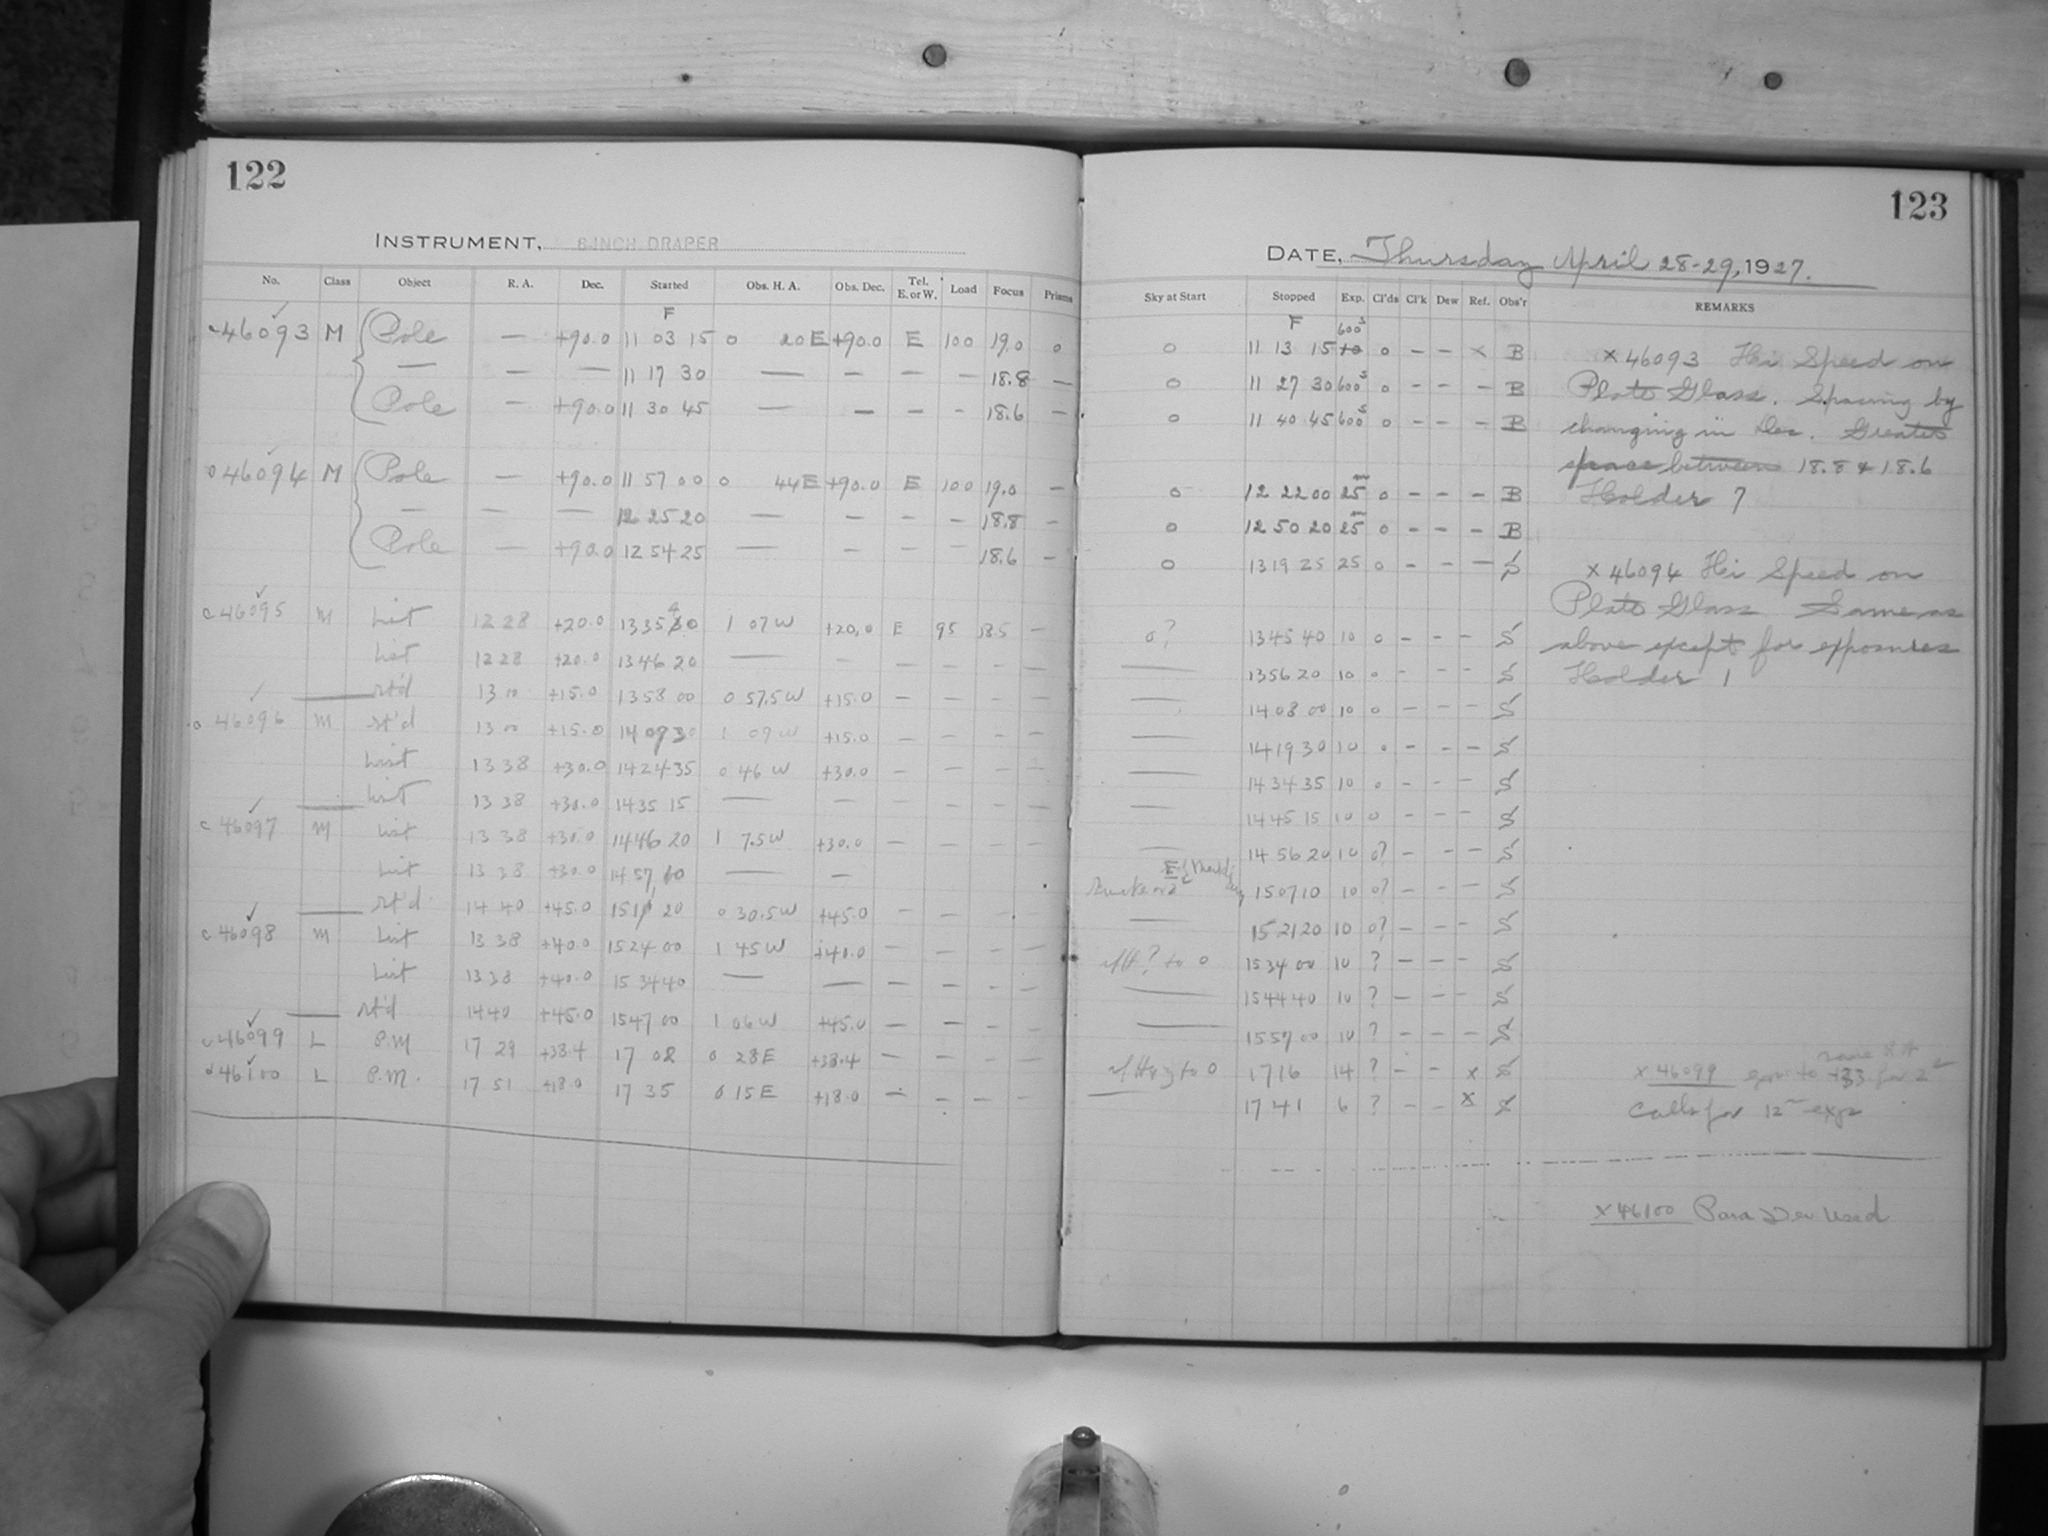 122
INSTRUMENT, 8-INCH DRAPER
No. Class Object R. A. Dec. Started Obs. H. A. Obs. Dec. Tel. E. or W. Load Focus Prisms
F
c 46093 M Pole — +90.0 11 03 15 0 20 E +90.0 E 100 19.0 0
— — — 11 17 30 — — — — 18.8 —
Pole — +90.0 11 30 45 — — — — 18.6 —
46094 M Pole — +90.0 11 57 00 0 44 E +90.0 E 100 19.0 —
— — — 12 25 20 — — — — 18.8 —
Pole — +90.0 12 54 25 — — — — 18.6 —
c 46095 M List 12 28 +20.0 13 35 40 1 07 W +20.0 E 95 18.5 —
List 12 28 +20.0 13 46 20 — — — — — —
st'd 13 00 +15.0 13 58 00 0 57.5 W +15.0 — — — —
46096 M st'd 13 00 +15.0 14 09 30 1 09 W +15.0 — — — —
List 13 38 +30.0 14 24 35 0 46 W +30.0 — — — —
List 13 38 +30.0 14 35 15 — — — — — —
c 46097 M List 13 38 +30.0 14 46 20 1 7.5 W +30.0 — — — —
List 13 38 +30.0 14 57 10 — —
st'd 14 40 +45.0 15 11 20 0 30.5 W +45.0 — — — —
c 46098 M List 13 38 +40.0 15 24 00 1 45 W +40.0 — — — —
List 13 38 +40.0 15 34 40 — — — — — —
st'd 14 40 +45.0 15 47 00 1 06 W +45.0 — — — —
46099 L P.M 17 29 +38.4 17 08 0 28 E +38.4 — — — —
46100 L P.M. 17 51 +18.0 17 35 0 15 E +18.0 — — — —
123
DATE, Thursday April 28-29, 1927.
Sky at Start Stopped Exp. Cl'ds Cl'k Dew Ref. Obs'r REMARKS
F 600s
0 11 13 15 10 0 — — x B x 46093 Hi Speed on
0 11 27 30 600s 0 — — — B Plate Glass. Spacing by
0 11 40 45 600s 0 — — — B changing in Dec. Greater
space between 18.8 & 18.6
0 12 22 00 25m 0 — — — B Holder 7
0 12 50 20 25m 0 — — — B
0 13 19 25 25 0 — — — S x 46094 Hi Speed on
Plate Glass Same as
0? 13 45 40 10 0 — — — S above except for exposures
— 13 56 20 10 0 — — — S Holder 1
— 14 08 00 10 0 — — — S
— 14 19 30 10 0 — — — S
— 14 34 35 10 0 — — — S
— 14 45 15 10 0 — — — S
— 14 56 20 10 0? — — — S
15 07 10 10 0? — — — S
— 15 21 20 10 0? — — — S
? to 0 15 34 00 10 ? — — — S
— 15 44 40 10 ? — — — S
— 15 57 00 10 ? — — — S
to 0 17 16 14 ? — — x S x 46099 to +33 for 2
— 17 41 6 ? — — x S Calls for 12m exp
x 46100 Para Dev Used